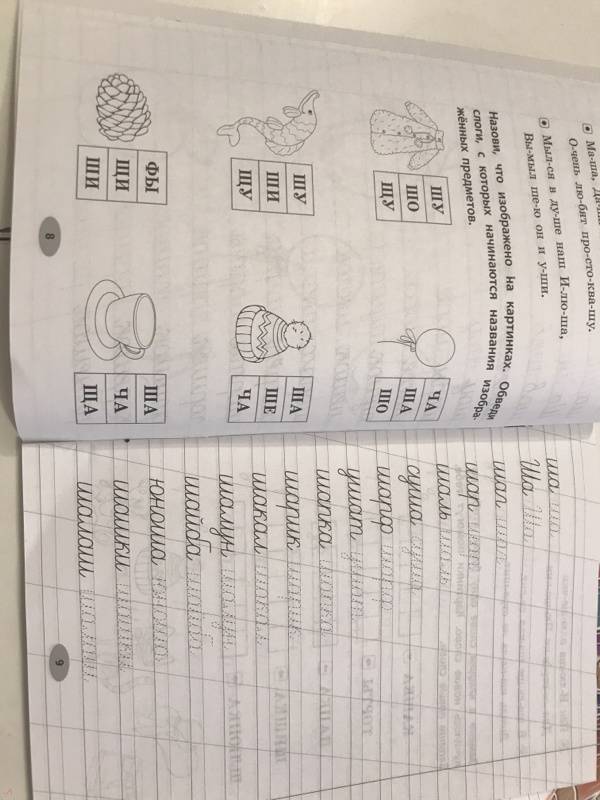 Ма-ша, Да-
О-чень лю-бят про-сто-ква-шу.
Мыл-ся в ду-ше наш И-лю-ша,
Вы-мыл ше-ю он и у-ши.
Назови, что изображено на картинках. Обведи
слоги, с которых начинаются названия изобра-
жённых предметов.
ШУ
ШО
ЩУ
ЧА
ША
ШО
ШУ
ШИ
ЩУ
ША
ШЕ
ЧА
ФЫ
ЩИ
ШИ
ША
ЧА
ЩА
8
ша ша
Ша Ша
шаг шаг
шар шар
шаль шаль
суша суша
шарф шарф
ушат ушат
шапка шапка
шарик шарик
шакал шакал
шалун шалун
шайба шайба
юноша юноша
шашки шашки
шалаш шалаш
9